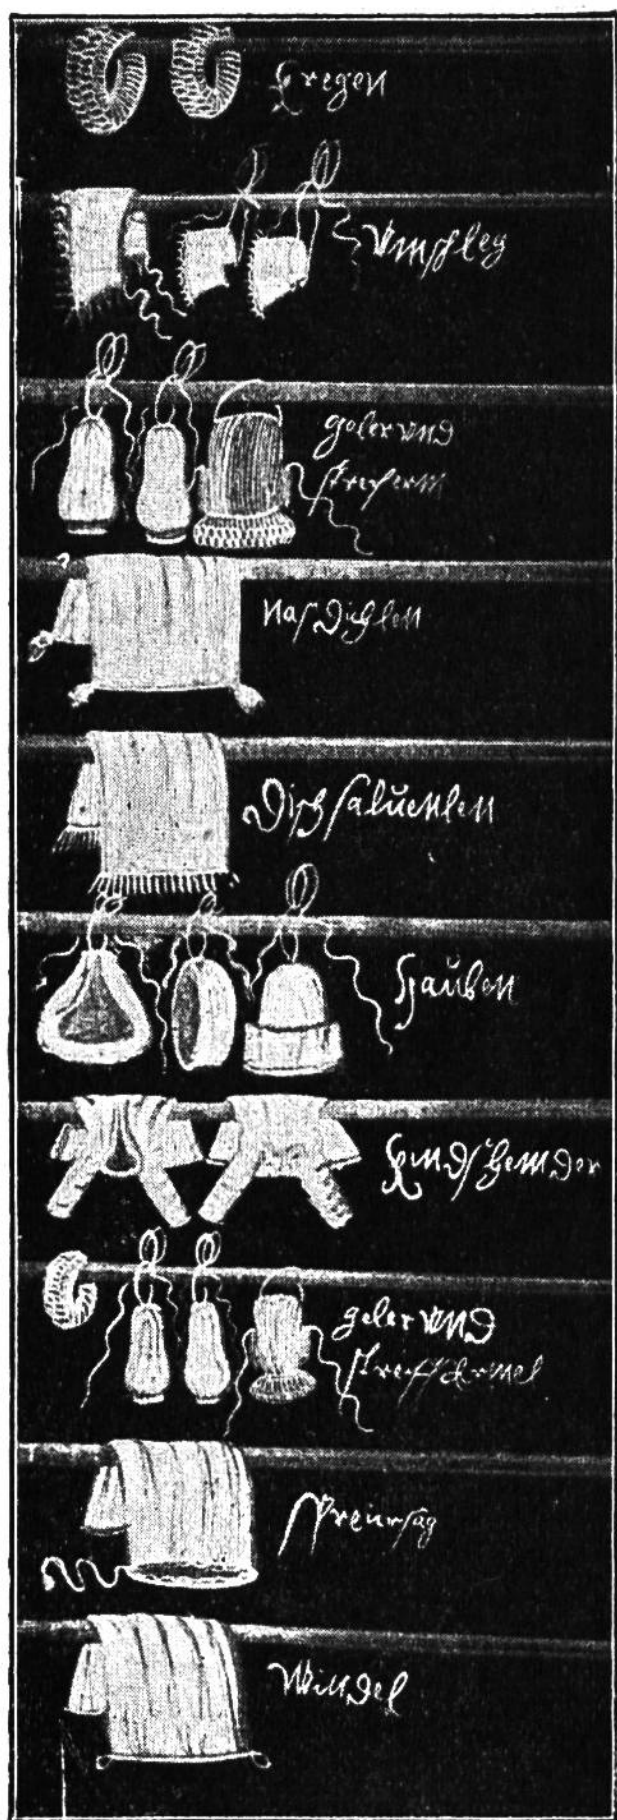 Kregen
Vmschleg
goler vnd
streiferm
nasdichlen
Disch saluetlen
Hauben
Kindshemder
geler vnd
streiffermel
spreursag
Windel